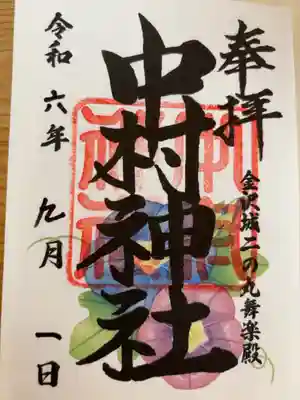 奉拝
金沢城二の丸舞楽殿
中村神社
令和六年九月一日